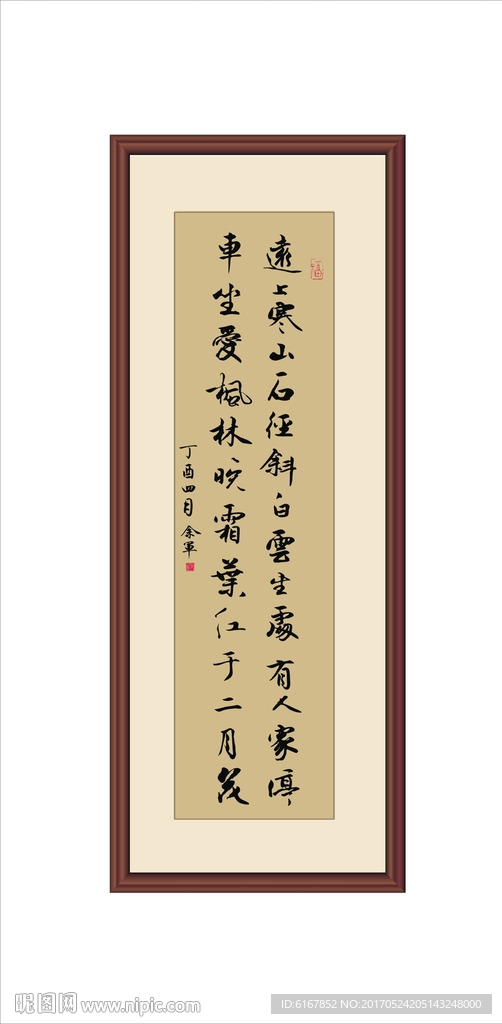 遠上寒山石徑斜白雲生處有人家停
車坐愛楓林晚霜葉紅于二月花
丁酉四月余軍
昵图网
www.nipic.com
ID:6167852 NO:20170524205143248000